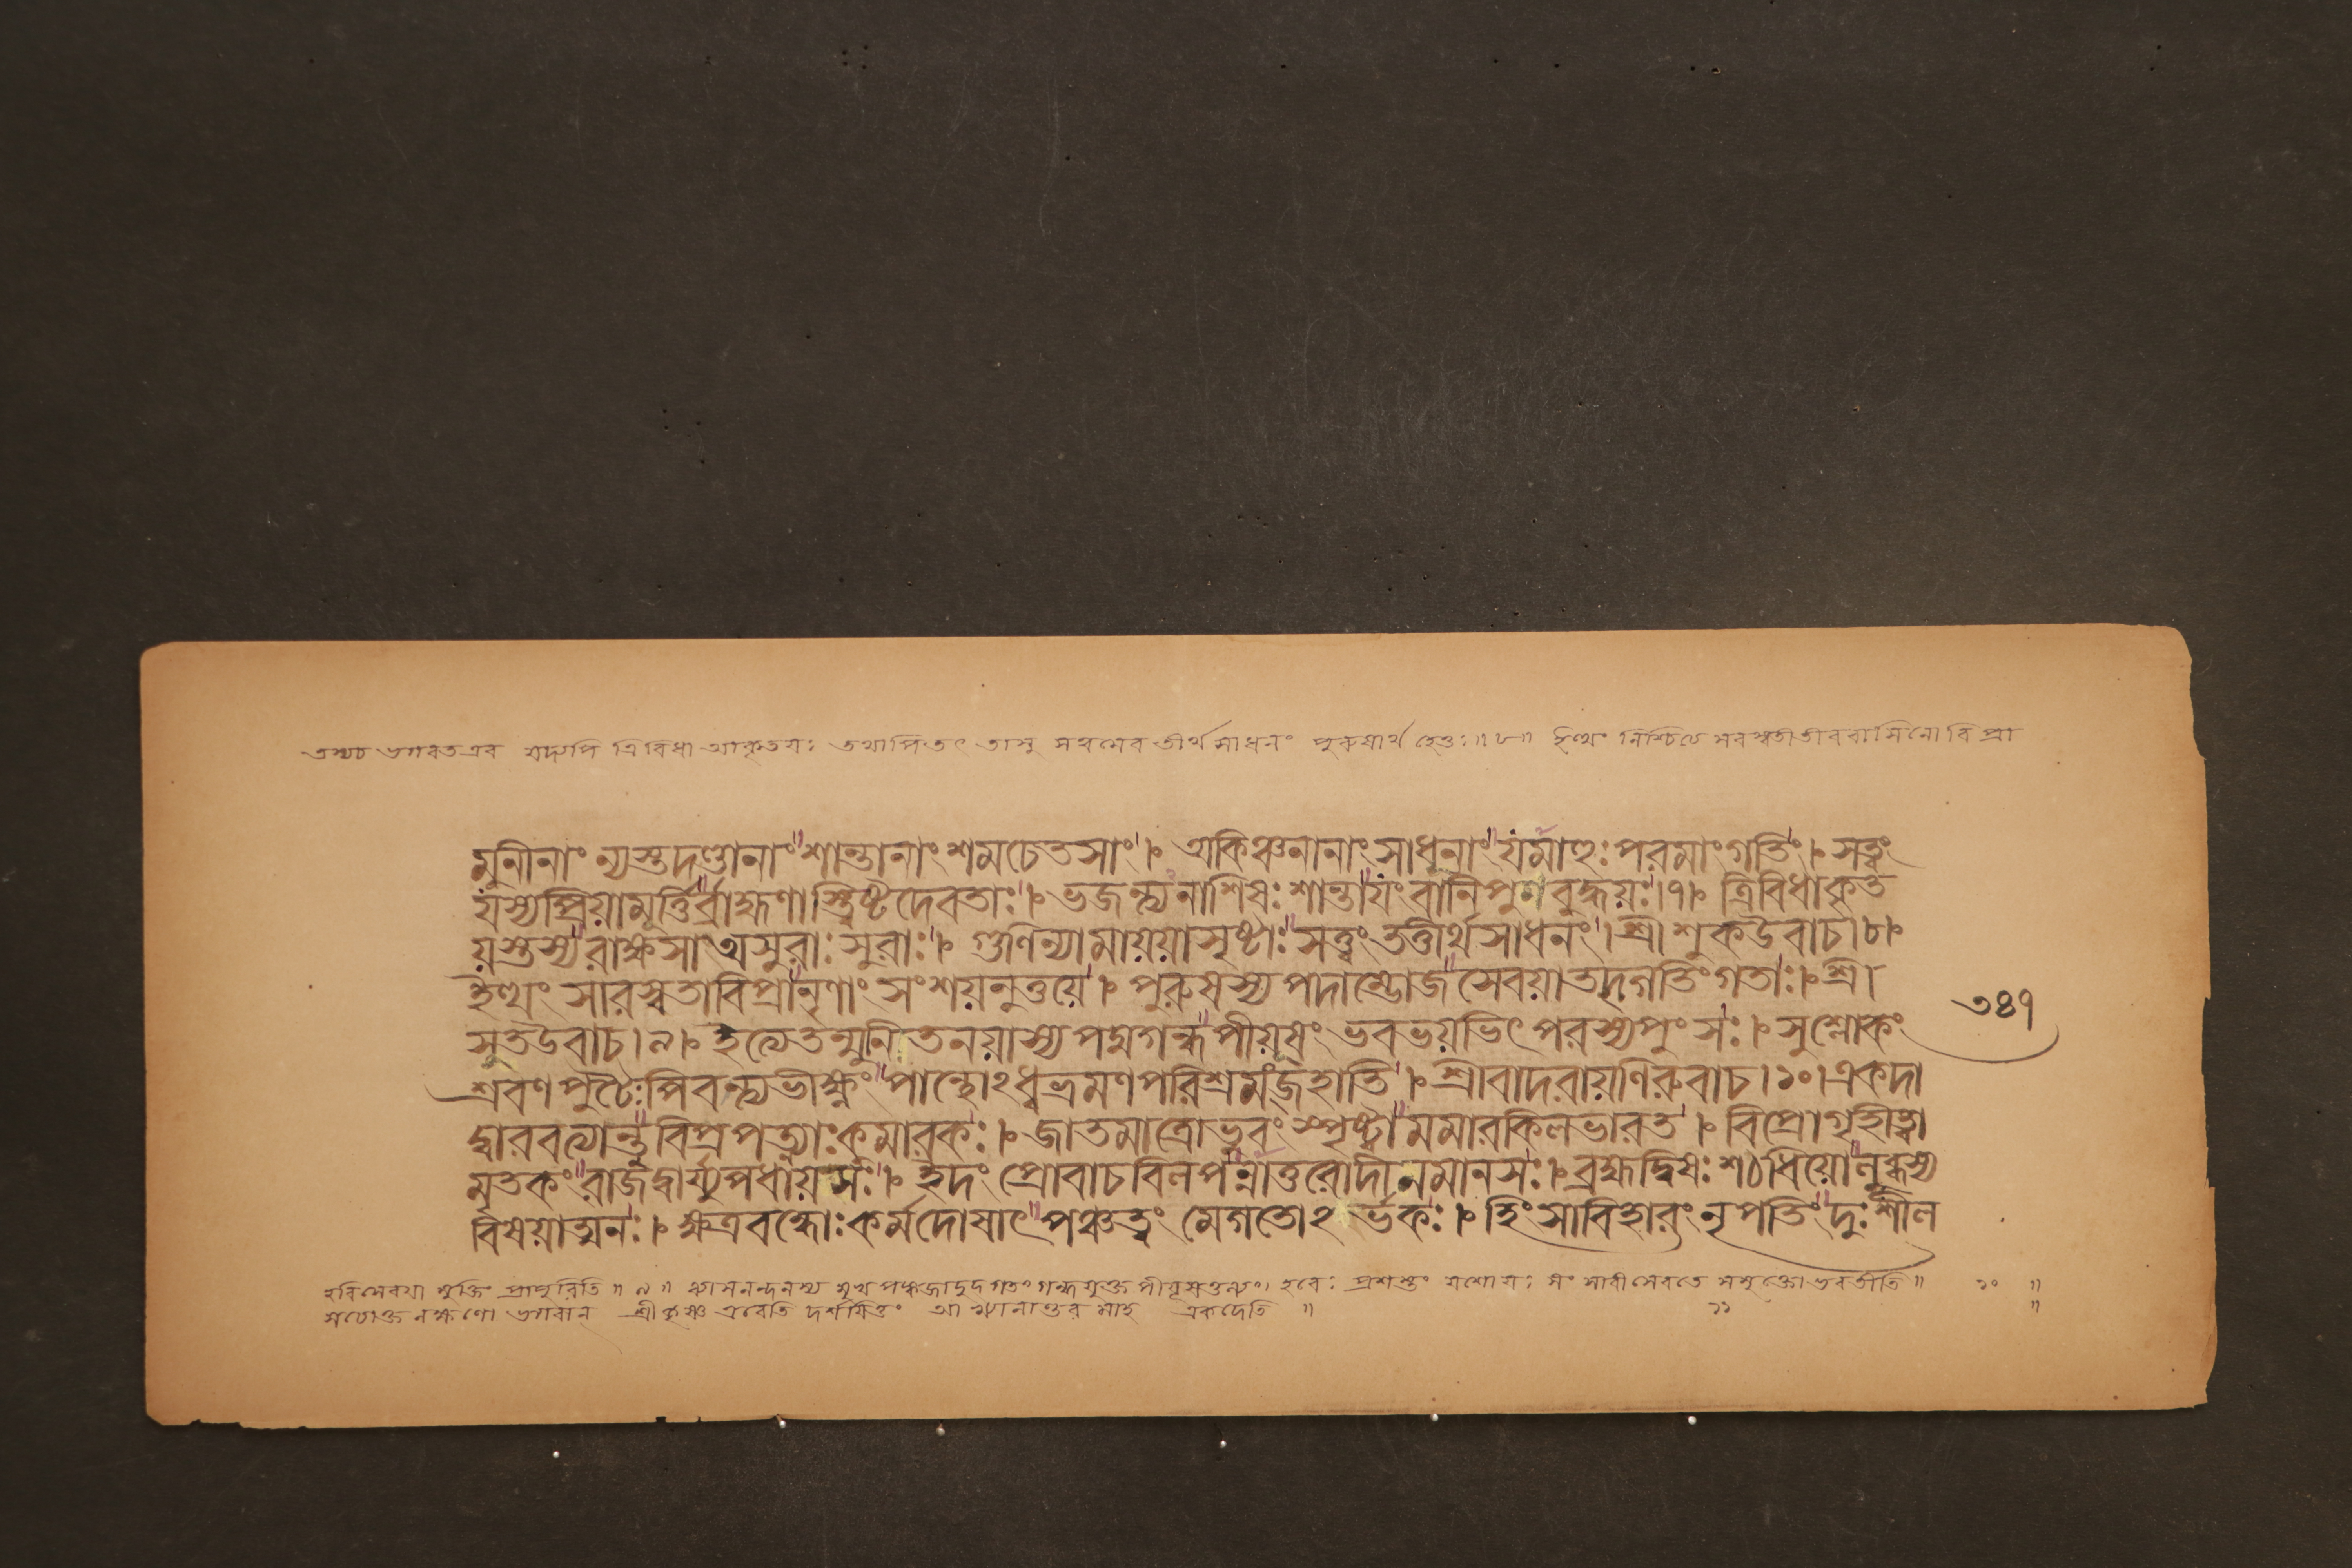 তস্যচ ভগবতএব যদ্যপি ত্রিবিধা আকৃতয়ঃ তথাপিতৎ তাসু সত্ত্বমেব তীর্থসাধনং পুরুষার্থ হেতুঃ॥৮॥ ইত্থং নিশ্চিত্য সরস্বতীতীরবাসিনো বিপ্রা
মুনীনাং ন্যস্তদণ্ডানাং শান্তানাং শমচেতসাং। একিঞ্চনানাং সাধূনাং যমাহুঃ পরমাংগতিং। সত্ত্বং
যস্যপ্রিয়ামূর্ত্তির্ব্রাহ্মণাস্ত্বিষ্টদেবতাঃ। ভজন্ত্যনাশিষঃ শান্তাযংবানিপুণবুদ্ধয়ঃ।৭। ত্রিবিধাকৃত
য়স্তস্যরাক্ষসা অসুরাঃ সুরাঃ। গুণিন্যামায়য়াসৃষ্টাঃ সত্ত্বং তত্তীর্থসাধনং। শ্রীশুকউবাচ।৮।
ইত্থং সারস্বতাবিপ্রানৃণাং সংশয়নুত্তয়ে। পুরুষস্য পদাম্ভোজসেবয়াতদ্গতিংগতাঃ। শ্রী
সূতউবাচ।৯। ইত্যেতন্মুনিতনয়াস্যপদ্মগন্ধপীয়ূষং ভবভয়ভিৎ পরস্যপুংসঃ। সুশ্লোকং
শ্রবণপুটৈঃপিবন্ত্যভীক্ষ্ণং পান্থোঽধ্বভ্রমণপরিশ্রমংজহাতি। শ্রীবাদরায়ণিরুবাচ।১০।একদা
দ্বারবত্যান্তু বিপ্রপত্ন্যাঃকুমারকঃ। জাতমাত্রোভুবং স্পৃষ্ট্বা মমারকিলভারত। বিপ্রোগৃহীত্বা
মৃতকং রাজদ্বার্য্যুপধায়সঃ। ইদং প্রোবাচবিলপন্নাতুরোদীনমানসঃ। ব্রহ্মদ্বিষঃশঠধিয়োলুব্ধস্য
বিষয়াত্মনঃ। ক্ষত্রবন্ধোঃকর্মদোষাৎ পঞ্চত্বং মেগতোঽর্ভকঃ। হিংসাবিহারং নৃপতিং দুঃশীল
৩৪৭
হরিসেবয়া মুক্তিং প্রাপুরিতি॥৯॥ ব্যাসনন্দনস্য মুখ পঙ্কজাদুদগতং গন্ধযুক্ত পীযূষতুল্যং হরেঃ প্রশস্তং যশোয়ঃ সেবতে সমুক্তো ভবতীতি॥ ১০॥
যথোক্ত লক্ষণো ভগবান্ শ্রীকৃষ্ণ এবেতি দর্শয়িতুং আখ্যানান্তর মাহ একদেতি॥ ১১॥